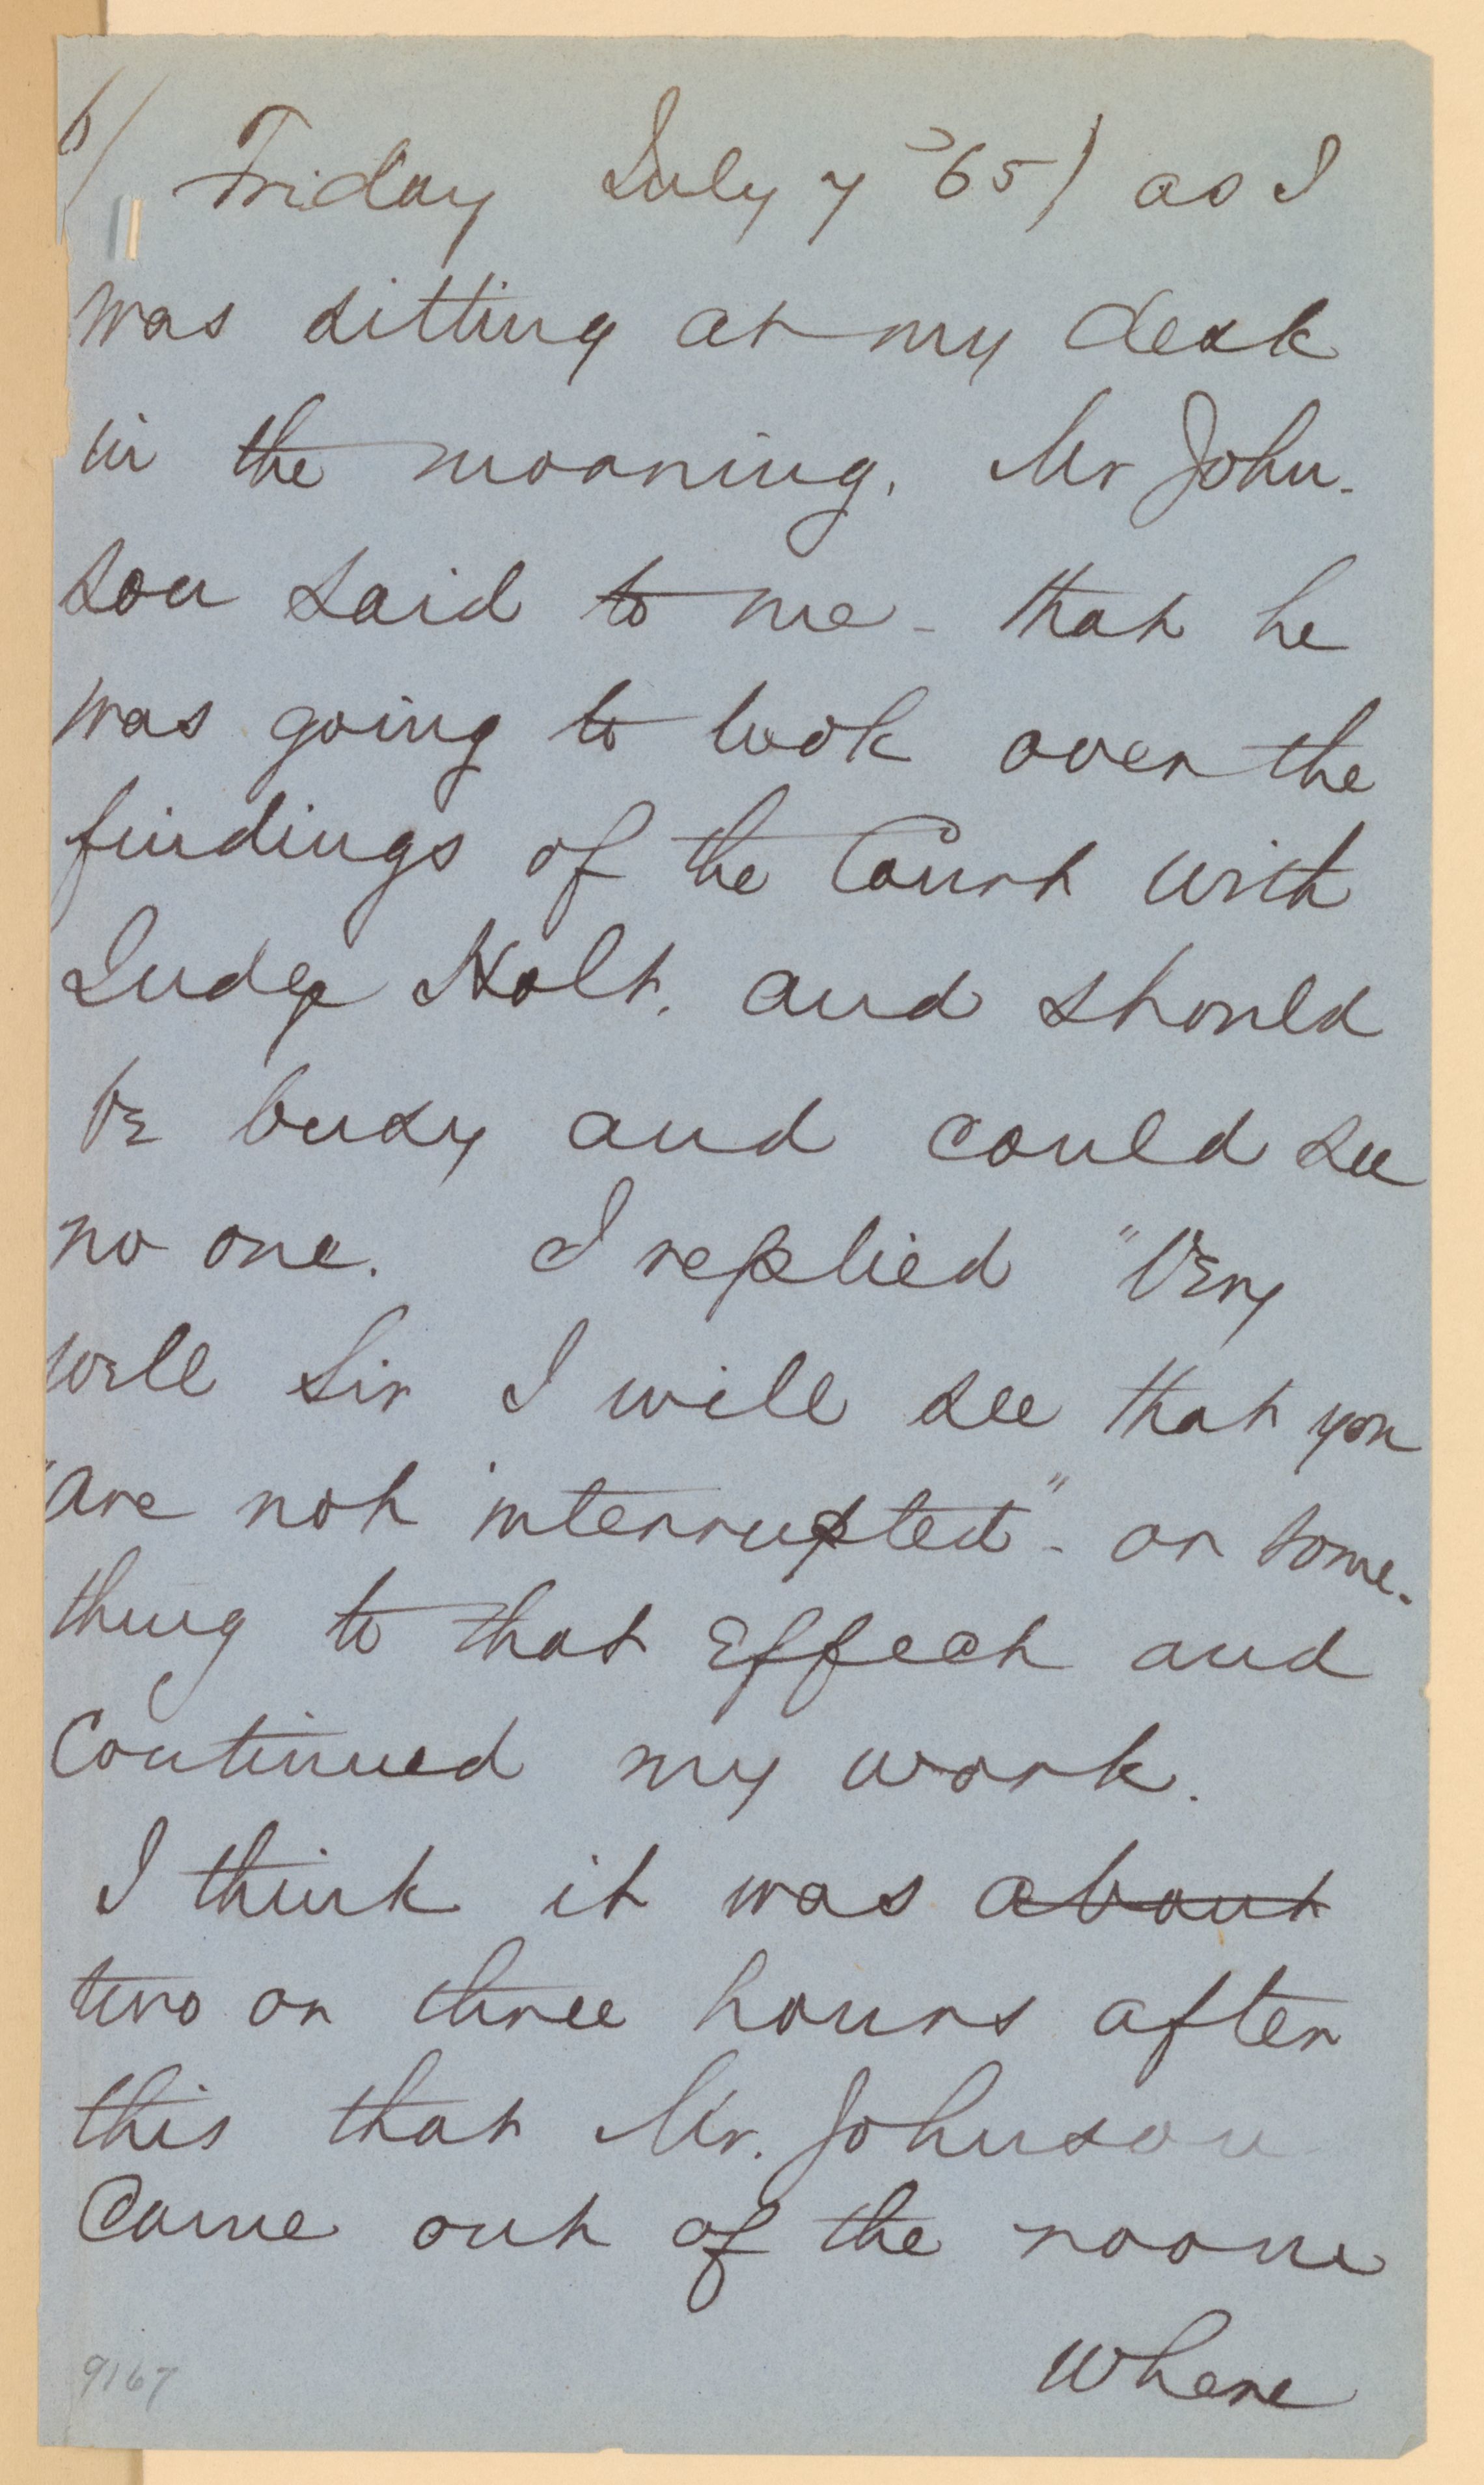 6/ Friday July 7 '65) as I
was sitting at my desk
in the morning. Mr John-
son said to me - that he
was going to look over the
findings of the Court with
Judge Holt, and should
be busy and could see
no one. I replied "Very
well Sir I will see that you
"are not interrupted" - or some-
thing to that Effect and
Continued my work.
I think it was about
two or three hours after
this that Mr. Johnson
Came out of the room
where
9167